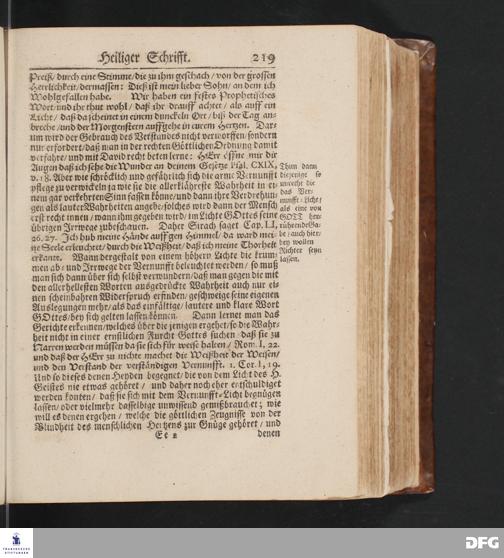 Heiliger Schrifft. 219
Preiß/ durch eine Stimme/ die zu ihm geschach/ von der grossen
Herrlichkeit/ dermassen: Dieß ist mein lieber Sohn/ an dem ich
Wohlgefallen habe. Wir haben ein festes Prophetisches
Wort/ und ihr thut wohl/ daß ihr drauff achtet/ als auff ein
Licht/ daß da scheinet in einem dunckeln Ort/ biß der Tag an-
breche/ und der Morgenstern auffgehe in eurem Hertzen. Dar-
um wird der Gebrauch des Verstandes nicht verworffen/ sondern
nur erfordert/ daß man in der rechten Göttlichen Ordnung damit
verfahre/ und mit David recht beten lerne: HErr öffne mir die
Augen daß ich sehe die Wunder an deinem Gesetze Psal. CXIX,
v. 18. Aber wie schröcklich und gefährlich sich die arme Vernunfft
pflege zu verwickeln/ ja wie sie die allerklähreste Wahrheit in ei-
nem gar verkehrten Sinn fassen könne/ und dann ihre Verdrehun-
gen als lauter Wahrheiten angebe/ solches wird dann der Mensch
erst recht innen/ wann ihm gegeben wird/ im Lichte GOttes seine
übrigen Irrwege zubeschauen. Daher Sirach saget Cap. LI,
26. 27. Ich hub meine Hände auff gen Himmel/ da ward mei-
ne Seele erleuchtet/ durch die Weißheit/ daß ich meine Thorheit
erkante. Wann dergestalt von einem höhern Lichte die krum-
men ab- und Irrwege der Vernunfft beleuchtet werden/ so muß
man sich dann über sich selbst verwundern/ daß man gegen die mit
den allerhellesten Worten ausgedrückte Wahrheit auch nur ei-
nen scheinbahren Widerspruch erfinden/ geschweige seine eigenen
Auslegungen mehr/ als das einfältige/ lautere und klare Wort
GOttes/ bey sich gelten lassen können. Dann lernet man das
Gerichte erkennen/ welches über die jenigen ergehet/ so die Wahr-
heit nicht in einer ernstlichen Furcht Gottes suchen daß sie zu
Narren worden müssen da sie sich für weise halten/ Rom. I, 22.
und daß der HErr zu nichte machet die Weißheit der Weisen/
und den Verstand der verständigen verwirfft. 1. Cor. I, 19.
Und so dieses denen Heyden begegnet/ die von dem Licht des H.
Geistes nie etwas gehöret/ und daher noch eher entschuldiget
werden konten/ daß sie sich mit dem Vernunfft-Licht begnügen
lassen/ oder vielmehr dasselbige unwissend gemißbrauchet; wie
will es denen ergehen/ welche die göttlichen Zeugnisse von der
Blindheit des menschlichen Hertzens zur Gnüge gehöret/ und
Ee 2 denen
Thun dann
diejenige so
unrecht die
das Ver-
nunfft-Licht/
als eine von
GOTT her-
rührende Ga-
be/ auch hier-
bey wollen
Richter seyn
lassen.
FRANCKESCHE
STIFTUNGEN
DFG